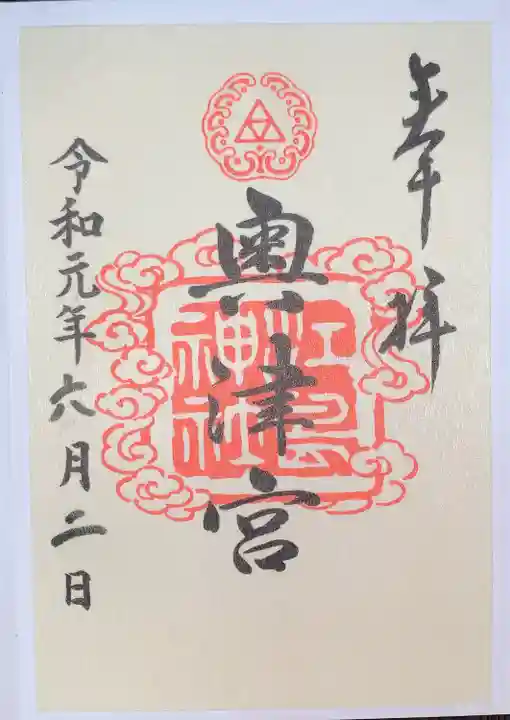 奉拝
奥津宮
江島
神社
令和元年六月二日